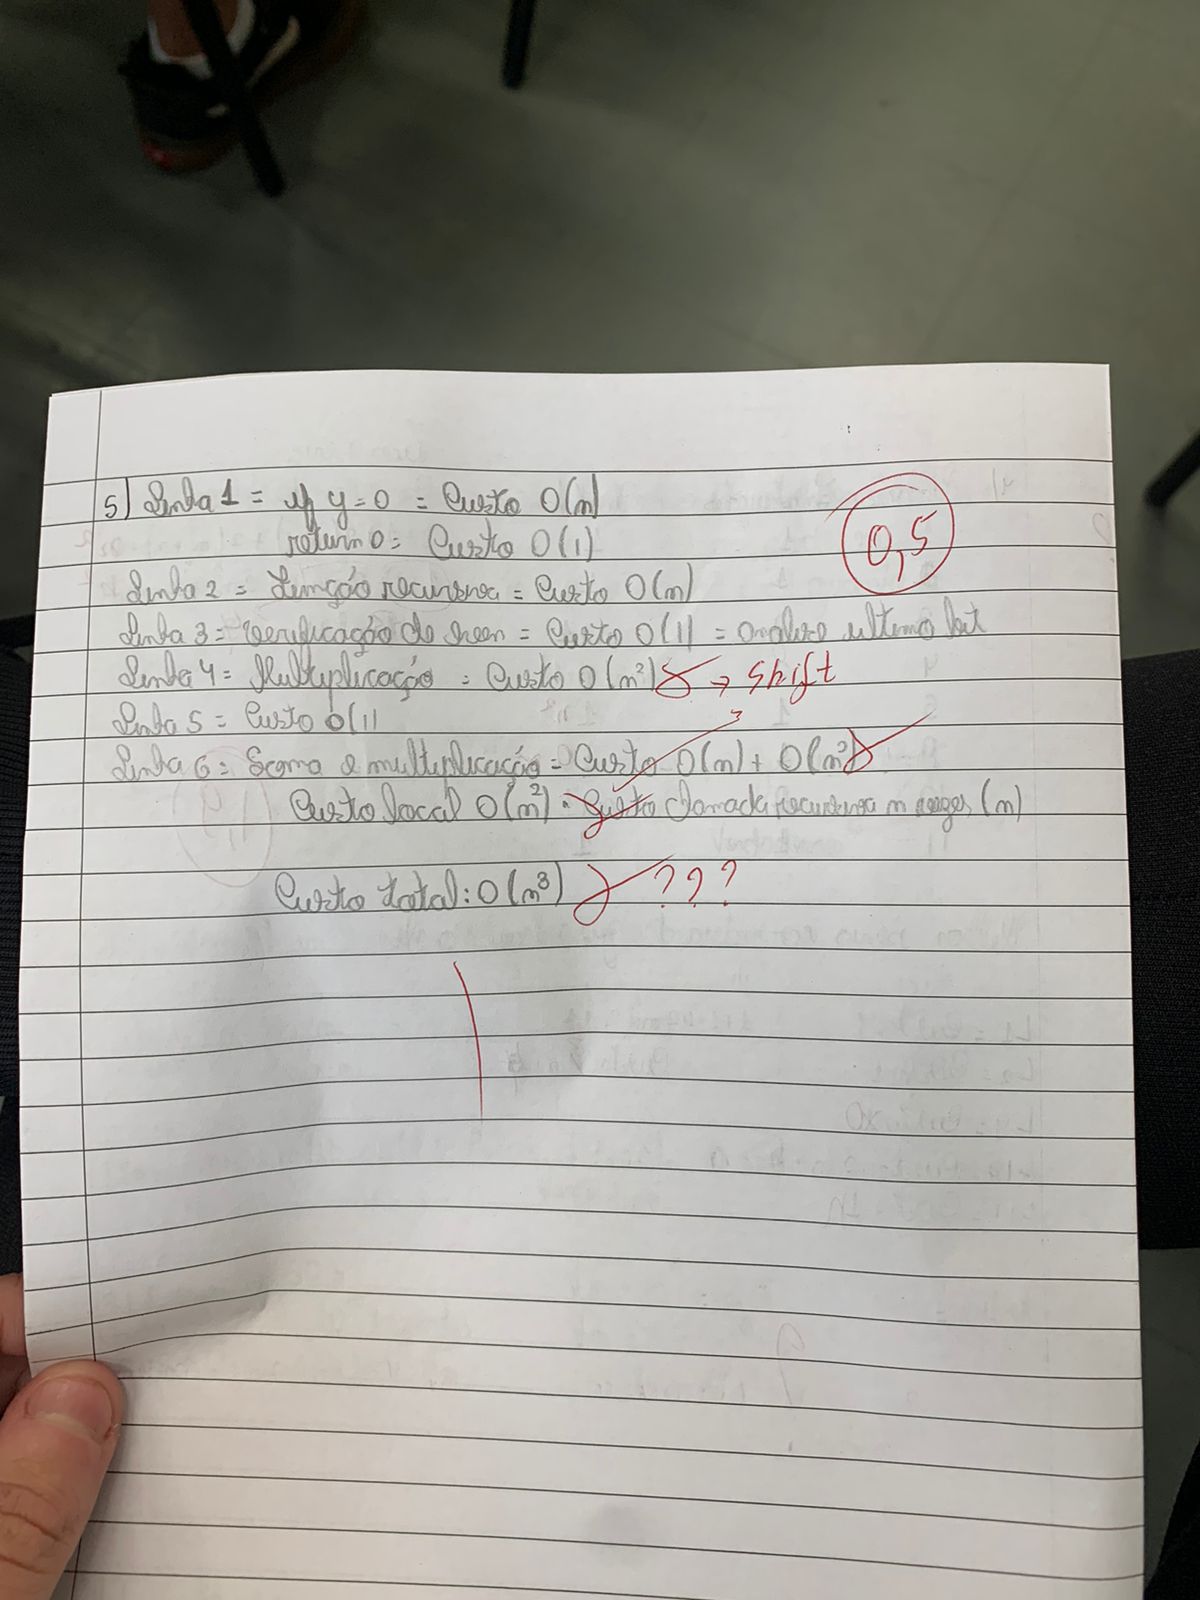 5) Linha 1 = if y = 0 = Custo O(n)
return 0 = Custo O(1)
0,5
Linha 2 = Função recursiva = Custo O(n)
Linha 3 = Verificação do = Custo O(1) = ultimo bit
Linha 4 = Multiplicação = Custo O(n²) → shift
Linha 5 = Custo O(1)
Linha 6 = Soma e multiplicação = Custo O(n) + O(n²)
Custo local O(n²) · Custo chamada recursiva n vezes (n)
Custo total: O(n³) ???